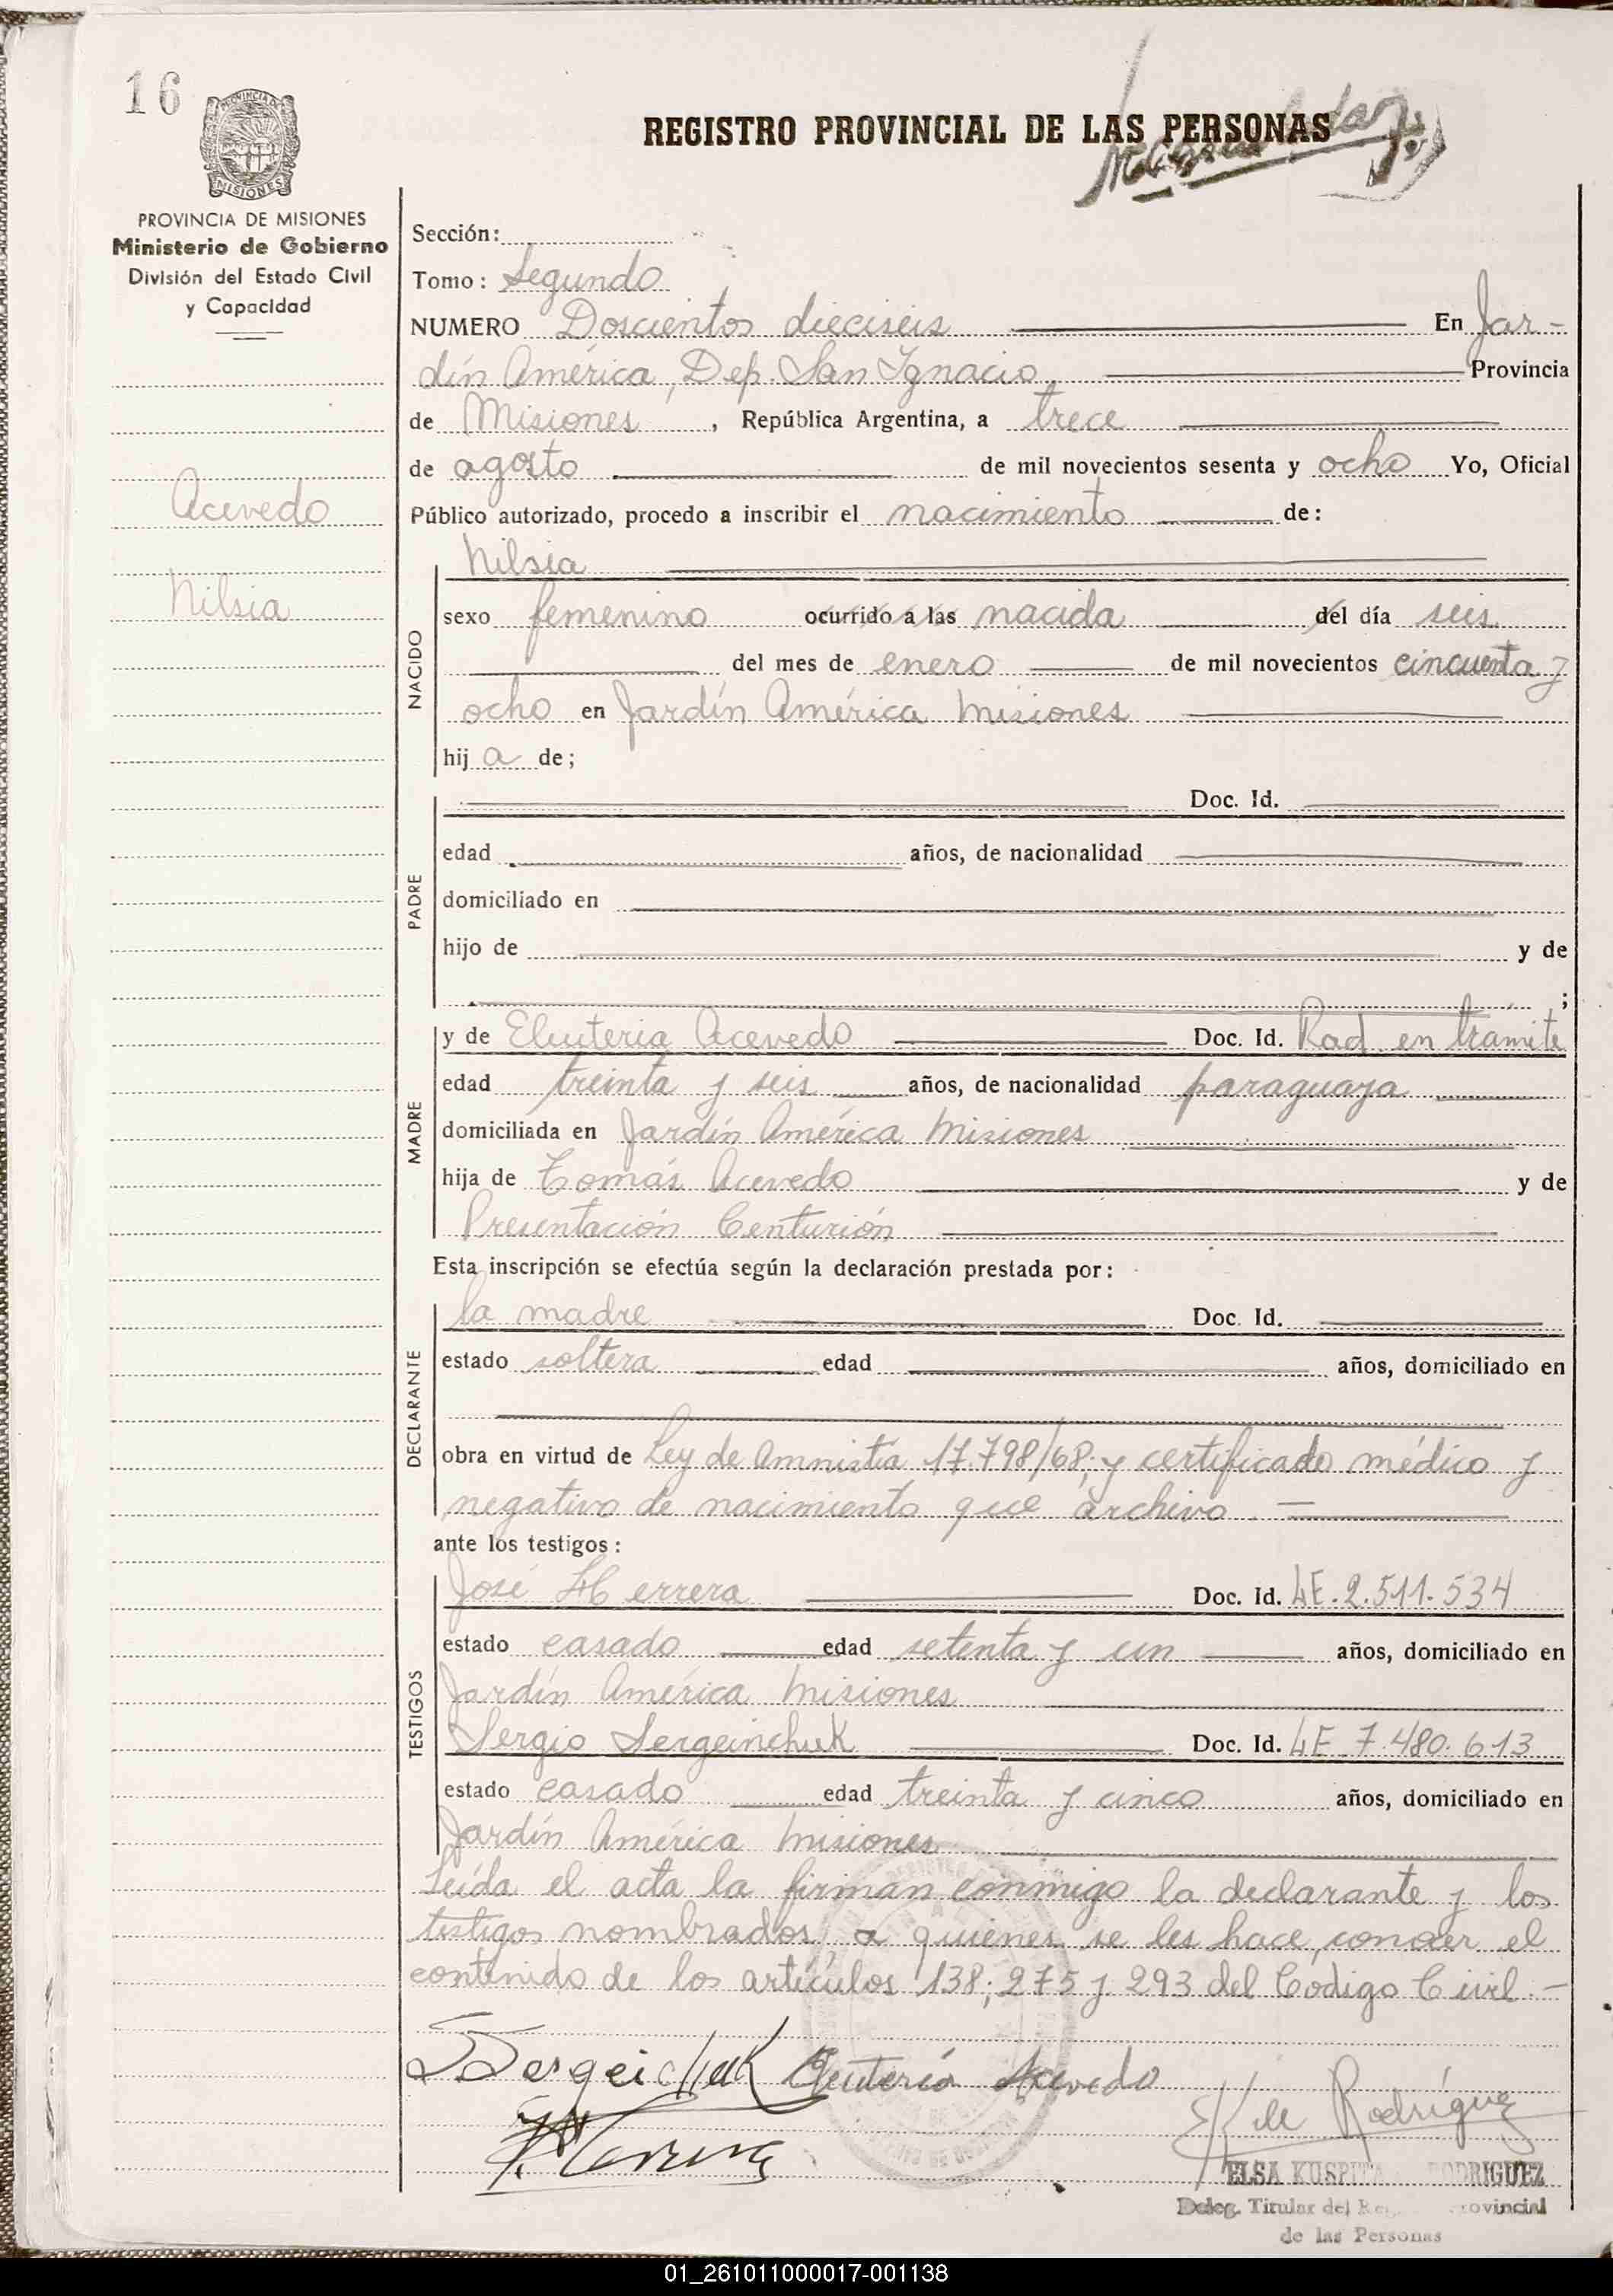 16
REGISTRO PROVINCIAL DE LAS PERSONAS
PROVINCIA DE MISIONES
MISIONES
PROVINCIA DE MISIONES
Ministerio de Gobierno
División del Estado Civil
y Capacidad
Acevedo
Nilsia
Sección:
Tomo: Segundo
NUMERO Doscientos dieciseis En Jar-
dín América, Dep. San Ignacio, Provincia
de Misiones, República Argentina, a trece
de agosto de mil novecientos sesenta y ocho Yo, Oficial
Público autorizado, procedo a inscribir el nacimiento de:
NACIDO
Nilsia
sexo femenino ocurrido a las nacida del día seis
del mes de enero de mil novecientos cincuenta y
ocho en Jardín América Misiones
hij a de;
PADRE
Doc. Id.
edad años, de nacionalidad
domiciliado en
hijo de y de
;
MADRE
y de Eleuteria Acevedo Doc. Id. Rad. en trámite
edad treinta y seis años, de nacionalidad paraguaya
domiciliada en Jardín América Misiones
hija de Tomás Acevedo y de
Presentación Centurión
Esta inscripción se efectúa según la declaración prestada por:
DECLARANTE
la madre Doc. Id.
estado soltera edad años, domiciliado en
obra en virtud de Ley de Amnistía 17.798/68; y certificado médico y
negativo de nacimiento que archivo.
ante los testigos:
TESTIGOS
José Herrera Doc. Id. LE. 2.511.534
estado casado edad setenta y un años, domiciliado en
Jardín América Misiones
Sergio Sergeinchuk Doc. Id. LE 7.480.613
estado casado edad treinta y cinco años, domiciliado en
Jardín América Misiones
Leída el acta la firman conmigo la declarante y los
testigos nombrados, a quienes se les hace conocer el
contenido de los artículos 138; 275 y 293 del Código Civil.-
S Sergeichuk Eleuteria Acevedo
J. Herrera
E K de Rodriguez
ELSA KUSPITA RODRIGUEZ
Deleg. Titular del Reg. Provincial
de las Personas
01_261011000017-001138